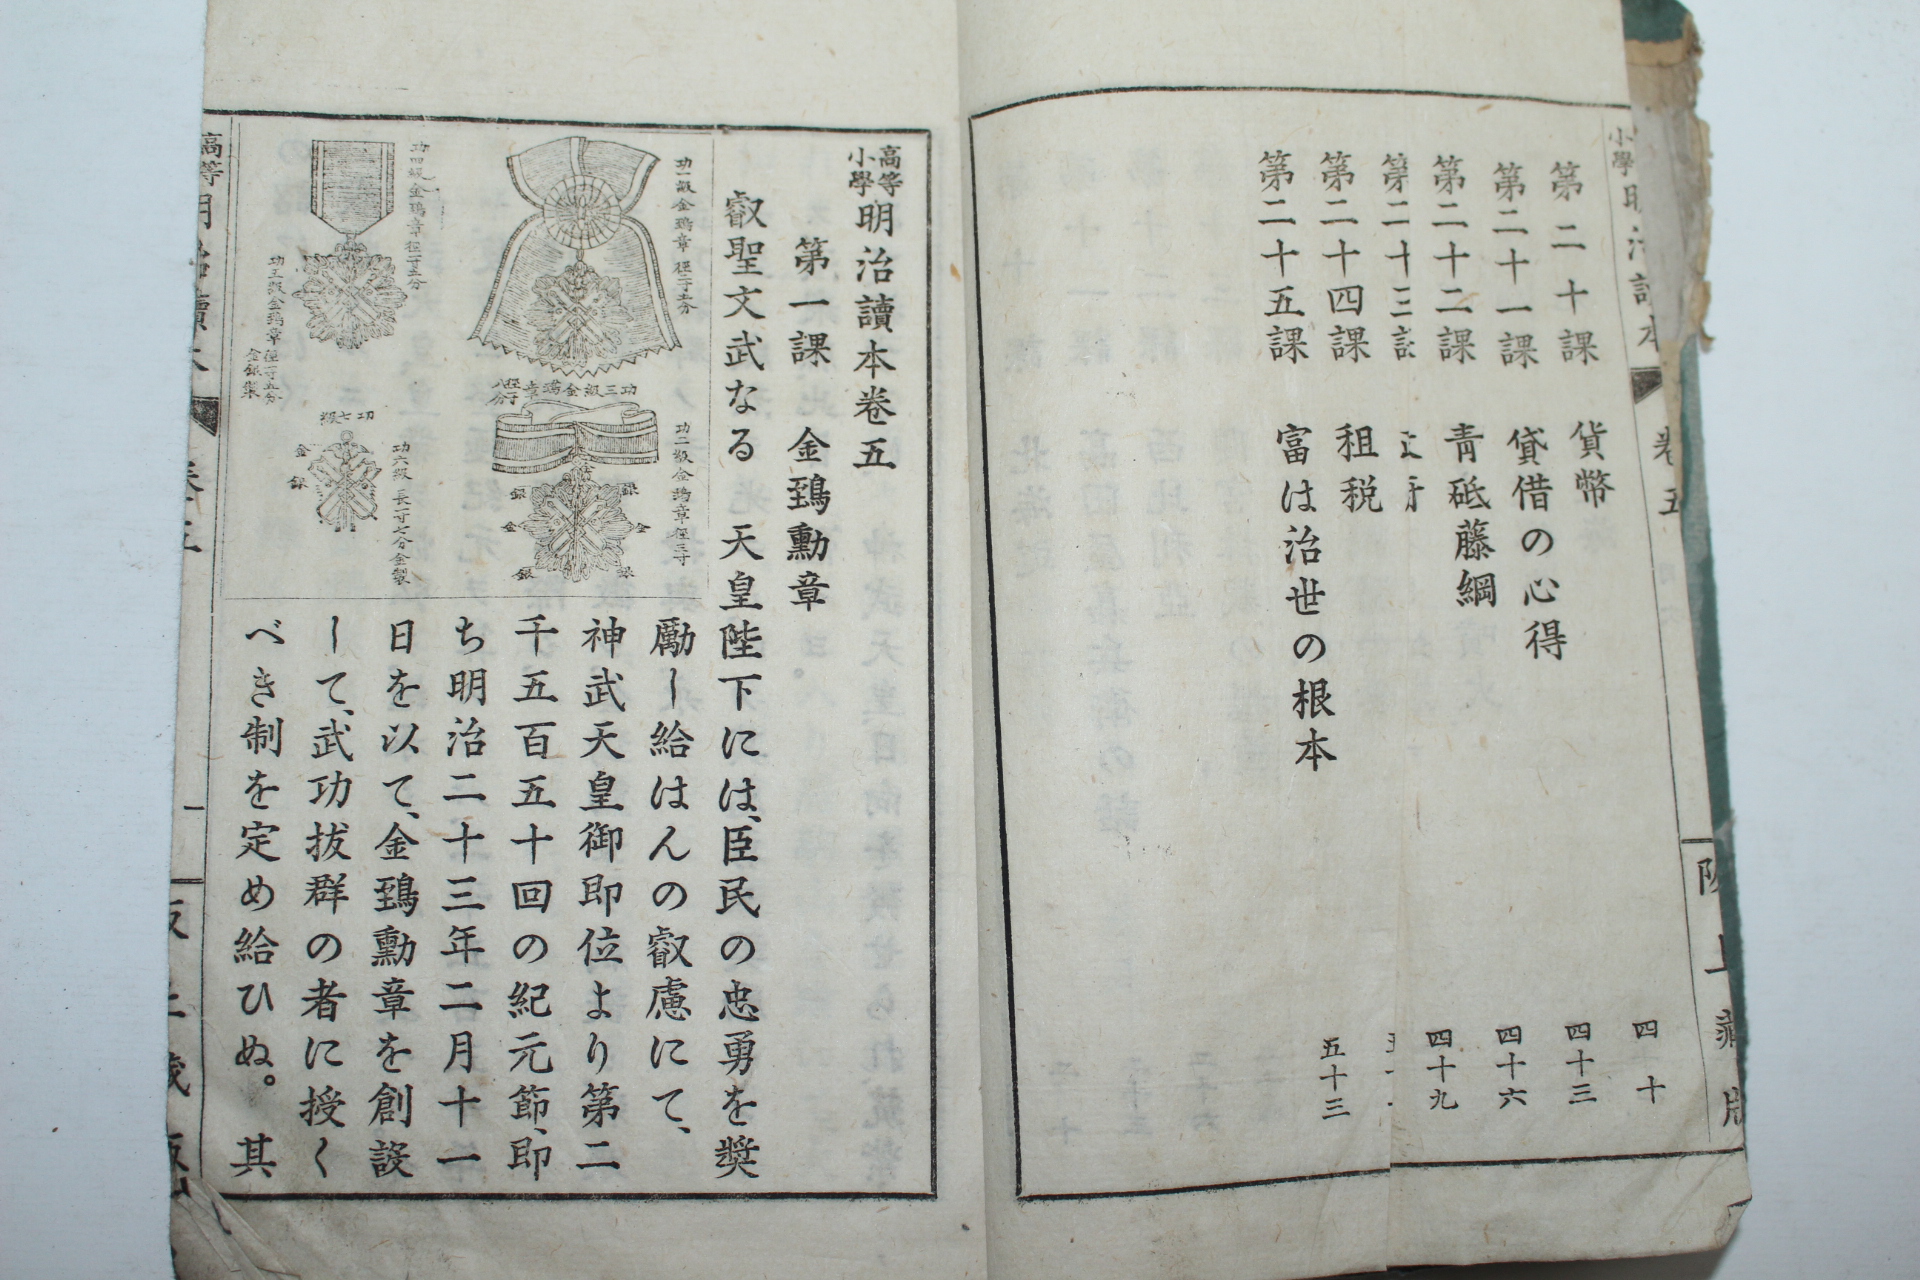 小學
卷五
第二十課 貨幣 四十
第二十一課 貸借の心得 四十三
第二十二課 青砥藤綱 四十六
第二十三 四十九
第二十四課 租税
第二十五課 富は治世の根本 五十三
藏版
高等小學明治讀本卷五
第一課 金鵄勳章
叡聖文武なる 天皇陛下には、臣民の忠勇を奬
勵し給はんの叡慮にて、
神武天皇御即位より第二
千五百五十回の紀元節、即
ち明治二十三年二月十一
日を以て、金鵄勳章を創設
して、武功拔群の者に授く
べき制を定め給ひぬ。其
功一級金鵄章 徑二寸五分
功三級金鵄章 徑一寸八分
功二級金鵄章 徑三寸
銀
銀
金
金
銀
銀
功四級金鵄章 徑一寸五分
功五級金鵄章 徑一寸五分 金銀製
功七級
金
銀
功六級 長一寸七分 金製
高等
一